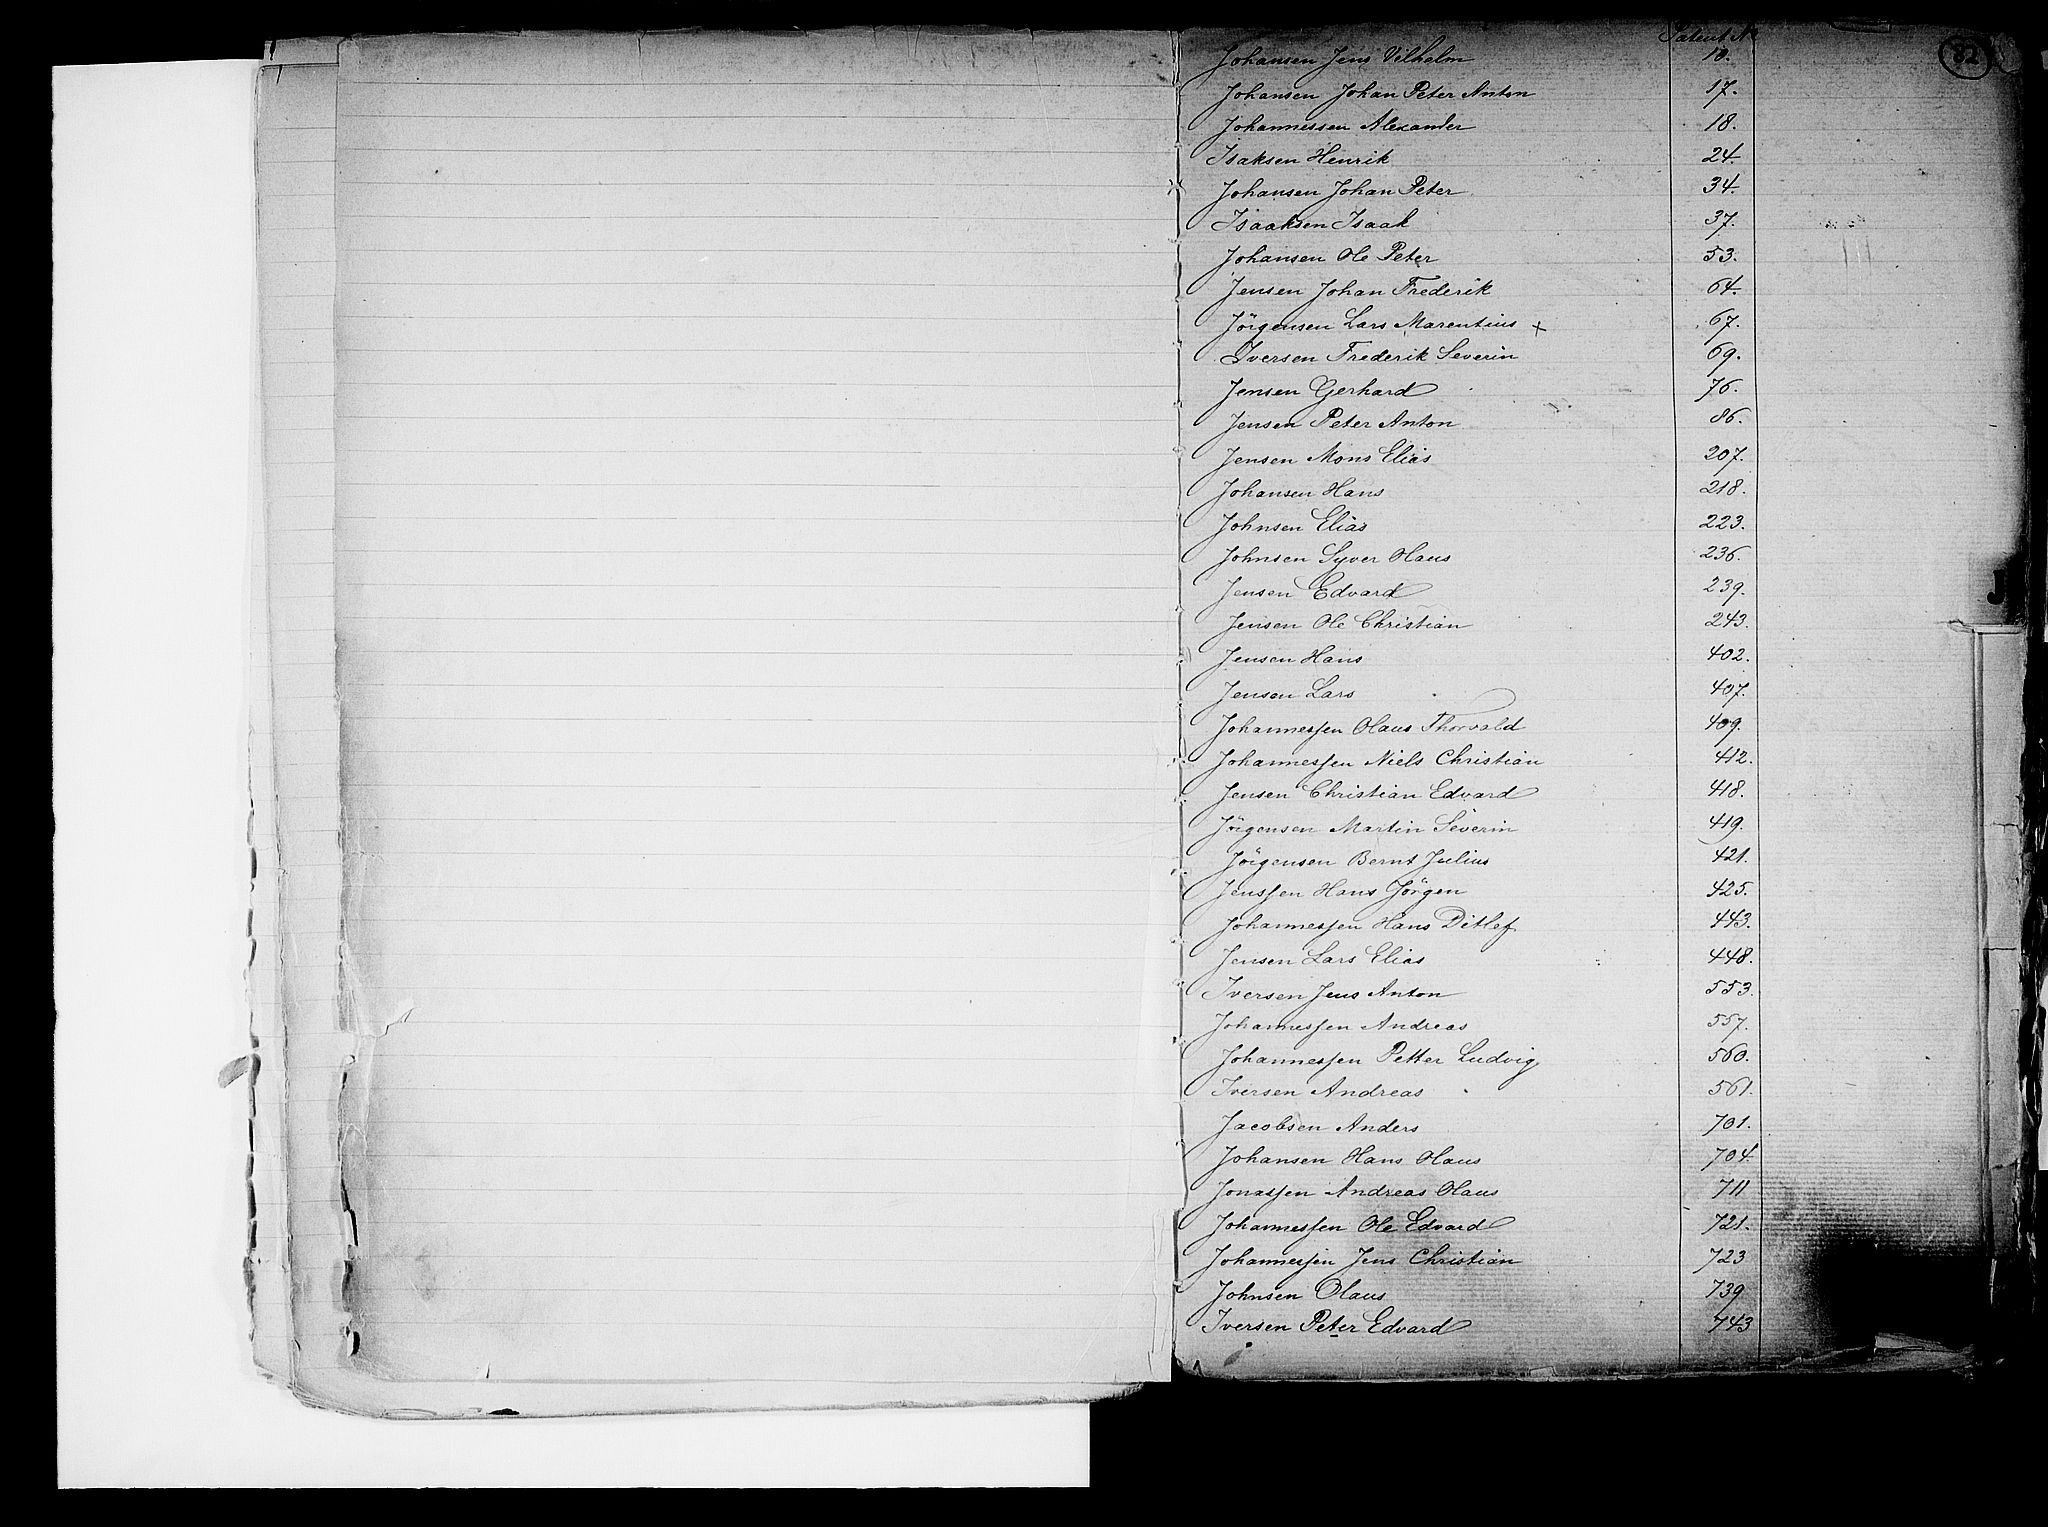 Patent No
82
Johansen Jens Vilhelm 10.
Johansen Johan Peter Anton 17.
Johannessen Alexander 18.
Isaksen Henrik 24.
Johansen Johan Peter 34.
Isaaksen Isaak 37.
Johansen Ole Peter 53.
Jensen Johan Frederik 64.
Jörgensen Lars Marentius + 67.
Iversen Frederik Severin 69.
Jensen Gerhard 76.
Jensen Peter Anton 86.
Jensen Mons Elias 207.
Johansen Hans 218.
Johnsen Elias 223.
Johnsen Syver Olaus 236.
Jensen Edvard 239.
J
Jensen Ole Christian 243.
Jensen Hans 402.
Jensen Lars 407.
Johannessen Olaus Thorvald 409.
Johannessen Niels Christian 412.
Jensen Christian Edvard 418.
Jörgensen Martin Severin 419.
Jörgensen Bernt Julius 421.
Jenssen Hans Jörgen 425.
Johannessen Hans Ditlef 443.
Jensen Lars Elias 448.
Iversen Jens Anton 553.
Johannessen Andreas 557.
Johannessen Petter Ludvig 560.
Iversen Andreas 561.
Jacobsen Anders 701.
Johansen Hans Olaus 704
Jonassen Andreas Olaus 711
Johannessen Ole Edvard 721.
Johannessen Jens Christian 723
Johnsen Olaus 739
Iversen Peter Edvard 743